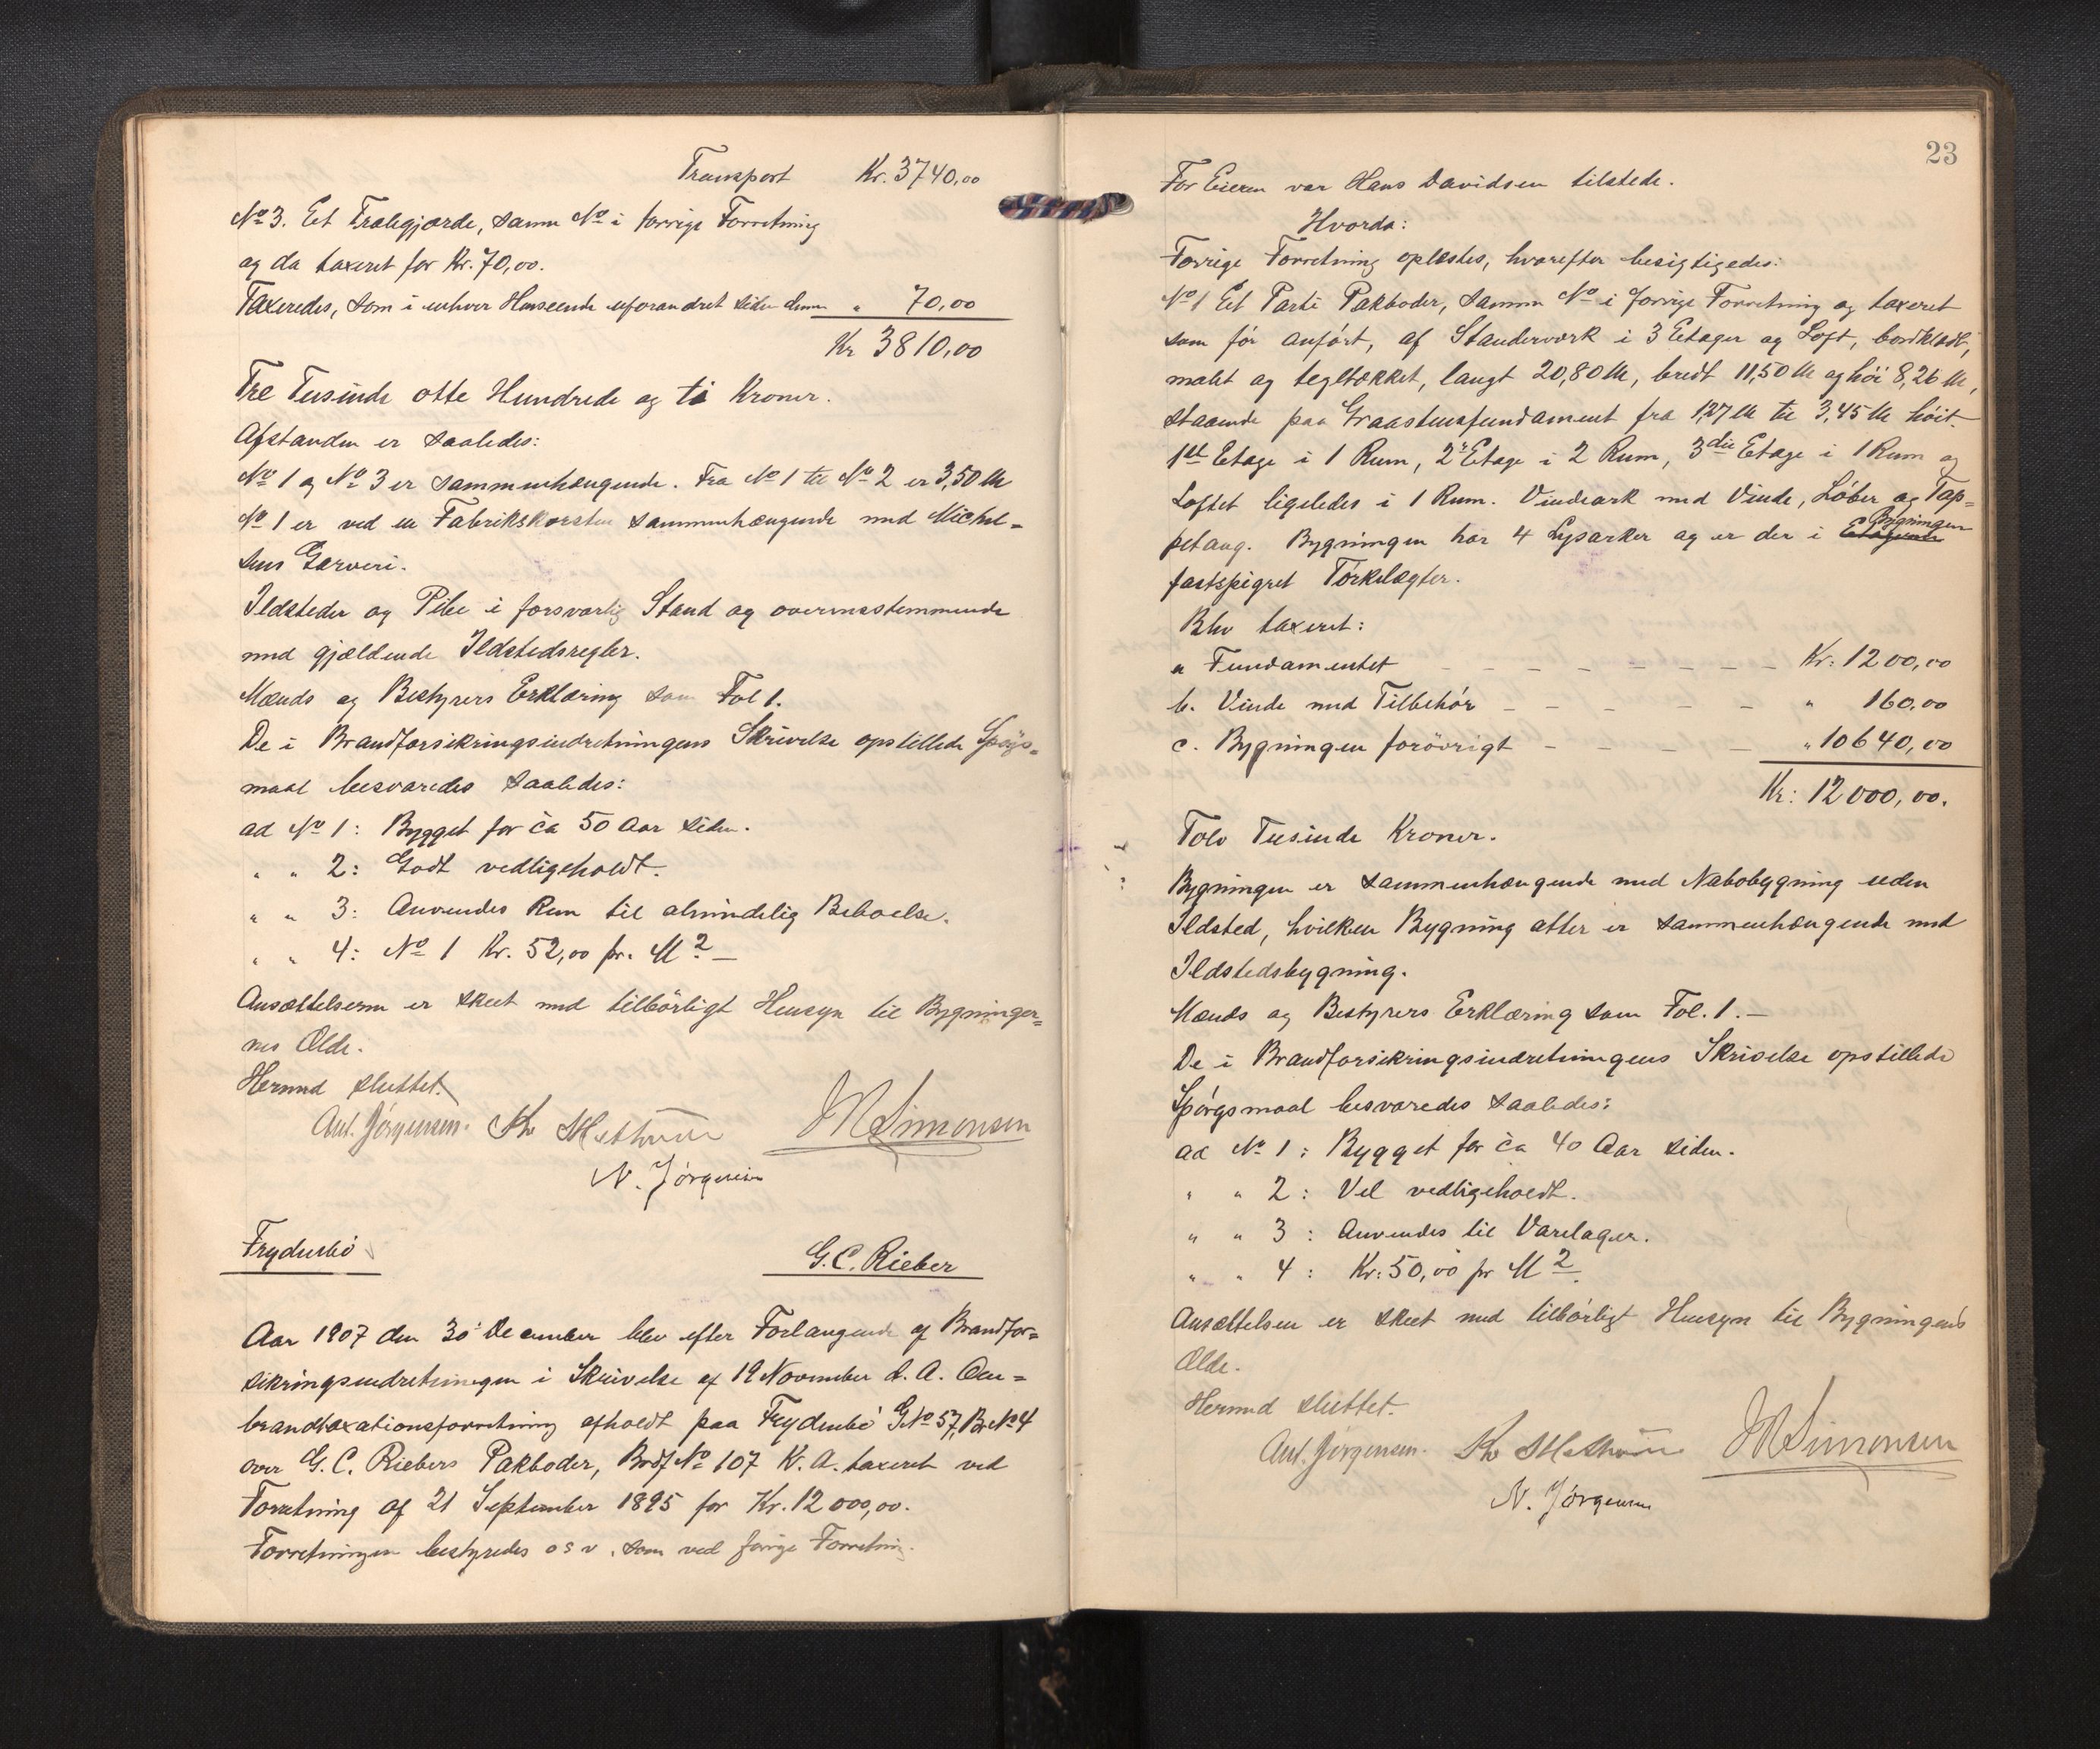 Transport Kr. 3740,00
No 3. Et Trælegjærde, samme No i forrige Forretning
og da taxeret for Kr. 70,00.
Taxeredes, som i enhver Henseende uforandret siden denne " 70,00
Kr 3810,00
Tre Tusinde otte Hundrede og ti Kroner.
Afstanden er saaledes:
No 1 og No 3 er sammenhængende. Fra No 1 til No 2 er 3,50 M
No 1 er ved en Fabrikskorsten sammenhængende med Michel=
sens Garveri.
Ildsteder og Pibe i forsvarlig Stand og overensstemmende
med gjældende Ildstedsregler.
Mænds og Bestyrers Erklæring som Fol 1.
De i Brandforsikringsindretningens Skrivelse opstillede Spörgs=
maal besvaredes saaledes:
ad No 1: Bygget for ca 50 Aar siden.
" " 2: Godt vedligeholdt.
" " 3: Anvendes kun til almindelig Beboelse.
" " 4: No 1 Kr. 52,00 pr. M2 —
Ansættelserne er skeet med tilbörligt Hensyn til Bygninger=
nes Ælde.
Hermed sluttet.
Ant. Jørgensen. JM Simonsen
N. Jørgensen
Frydenbö
G. C. Rieber
Aar 1907 den 30' December blev efter Forlangende af Brandfor=
sikringsindretningen i Skrivelse af 19 November d. A. Om=
brandtaxationsforretning afholdt paa Frydenbö G No 57, Br No 4
over G. C. Riebers Pakboder, Brdf No 107 K. A. taxeret ved
Forretning af 21 September 1895 for Kr. 12 000,00.
Forretningen bestyredes o s v. som ved forrige Forretning.
23
For Eieren var Hans Davidsen tilstede.
Hvorda:
Forrige Forretning oplæstes, hvorefter besigtigedes:
No 1 Et Parti Pakboder, samme No i forrige Forretning og taxeret
som för anfört, af Standerværk i 3 Etager og Loft, bordklædt,
malet og tegltækket, langt 20,80 M, bredt 11,50 M og höi 8,26 M,
staaende paa Graastensfundament fra 1,27 M til 3,45 M höit.
1ste Etage i 1 Rum, 2' Etage i 2 Rum, 3die Etage i 1 Rum og
Loftet ligeledes i 1 Rum. Vindeark med Vinde, Löber og Tap=
petang. Bygningen har 4 Lysarker og er der i Etagerne Bygningen
fastspigret Törkelægter.
Blev taxeret:
a Fundamentet — — — — — — — Kr: 1200,00
b. Vinde med Tilbehör — — — — — " 160,00
c. Bygningen forövrigt — — — — — " 10640,00
Kr: 12 000,00.
Tolv Tusinde Kroner.
Bygningen er sammenhængende med Nabobygning uden
Ildsted, hvilken Bygning atter er sammenhængende med
Ildstedsbygning.
Mænds og Bestyrers Erklæring som Fol. 1. —
De i Brandforsikringsindretningens Skrivelse opstillede
Spörgsmaal besvaredes saaledes:
ad No 1: Bygget for ca 40 Aar siden.
" " 2: Vel vedligeholdt.
" " 3: Anvendes til Varelager.
" " 4: Kr: 50,00 pr M2.
Ansættelsen er skeet med tilbörligt Hensyn til Bygningens
Ælde.
Hermed sluttet.
Ant. Jørgensen. JM Simonsen
N. Jørgensen